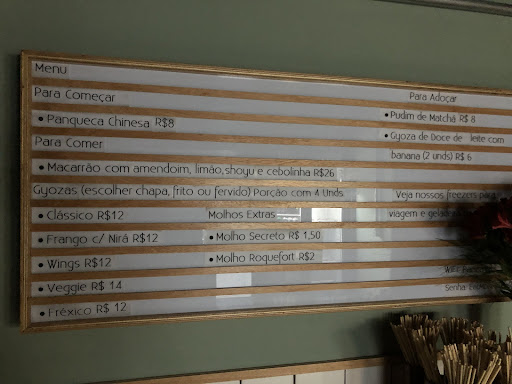 Menu
Para Começar
• Panqueca Chinesa R$8
Para Comer
• Macarrão com amendoim, limão, shoyu e cebolinha R$26
Gyozas (escolher chapa, frito ou fervido) Porção com 4 Unds
• Clássico R$12
• Frango c/ Nirá R$12
• Wings R$12
• Veggie R$ 14
• Fréxico R$ 12
Molhos Extras
• Molho Secreto R$ 1,50
• Molho Roquefort R$2
Para Adoçar
• Pudim de Matchá R$ 8
• Gyoza de Doce de leite com
banana (2 unds) R$ 6
Veja nossos freezers para
viagem e
Senha